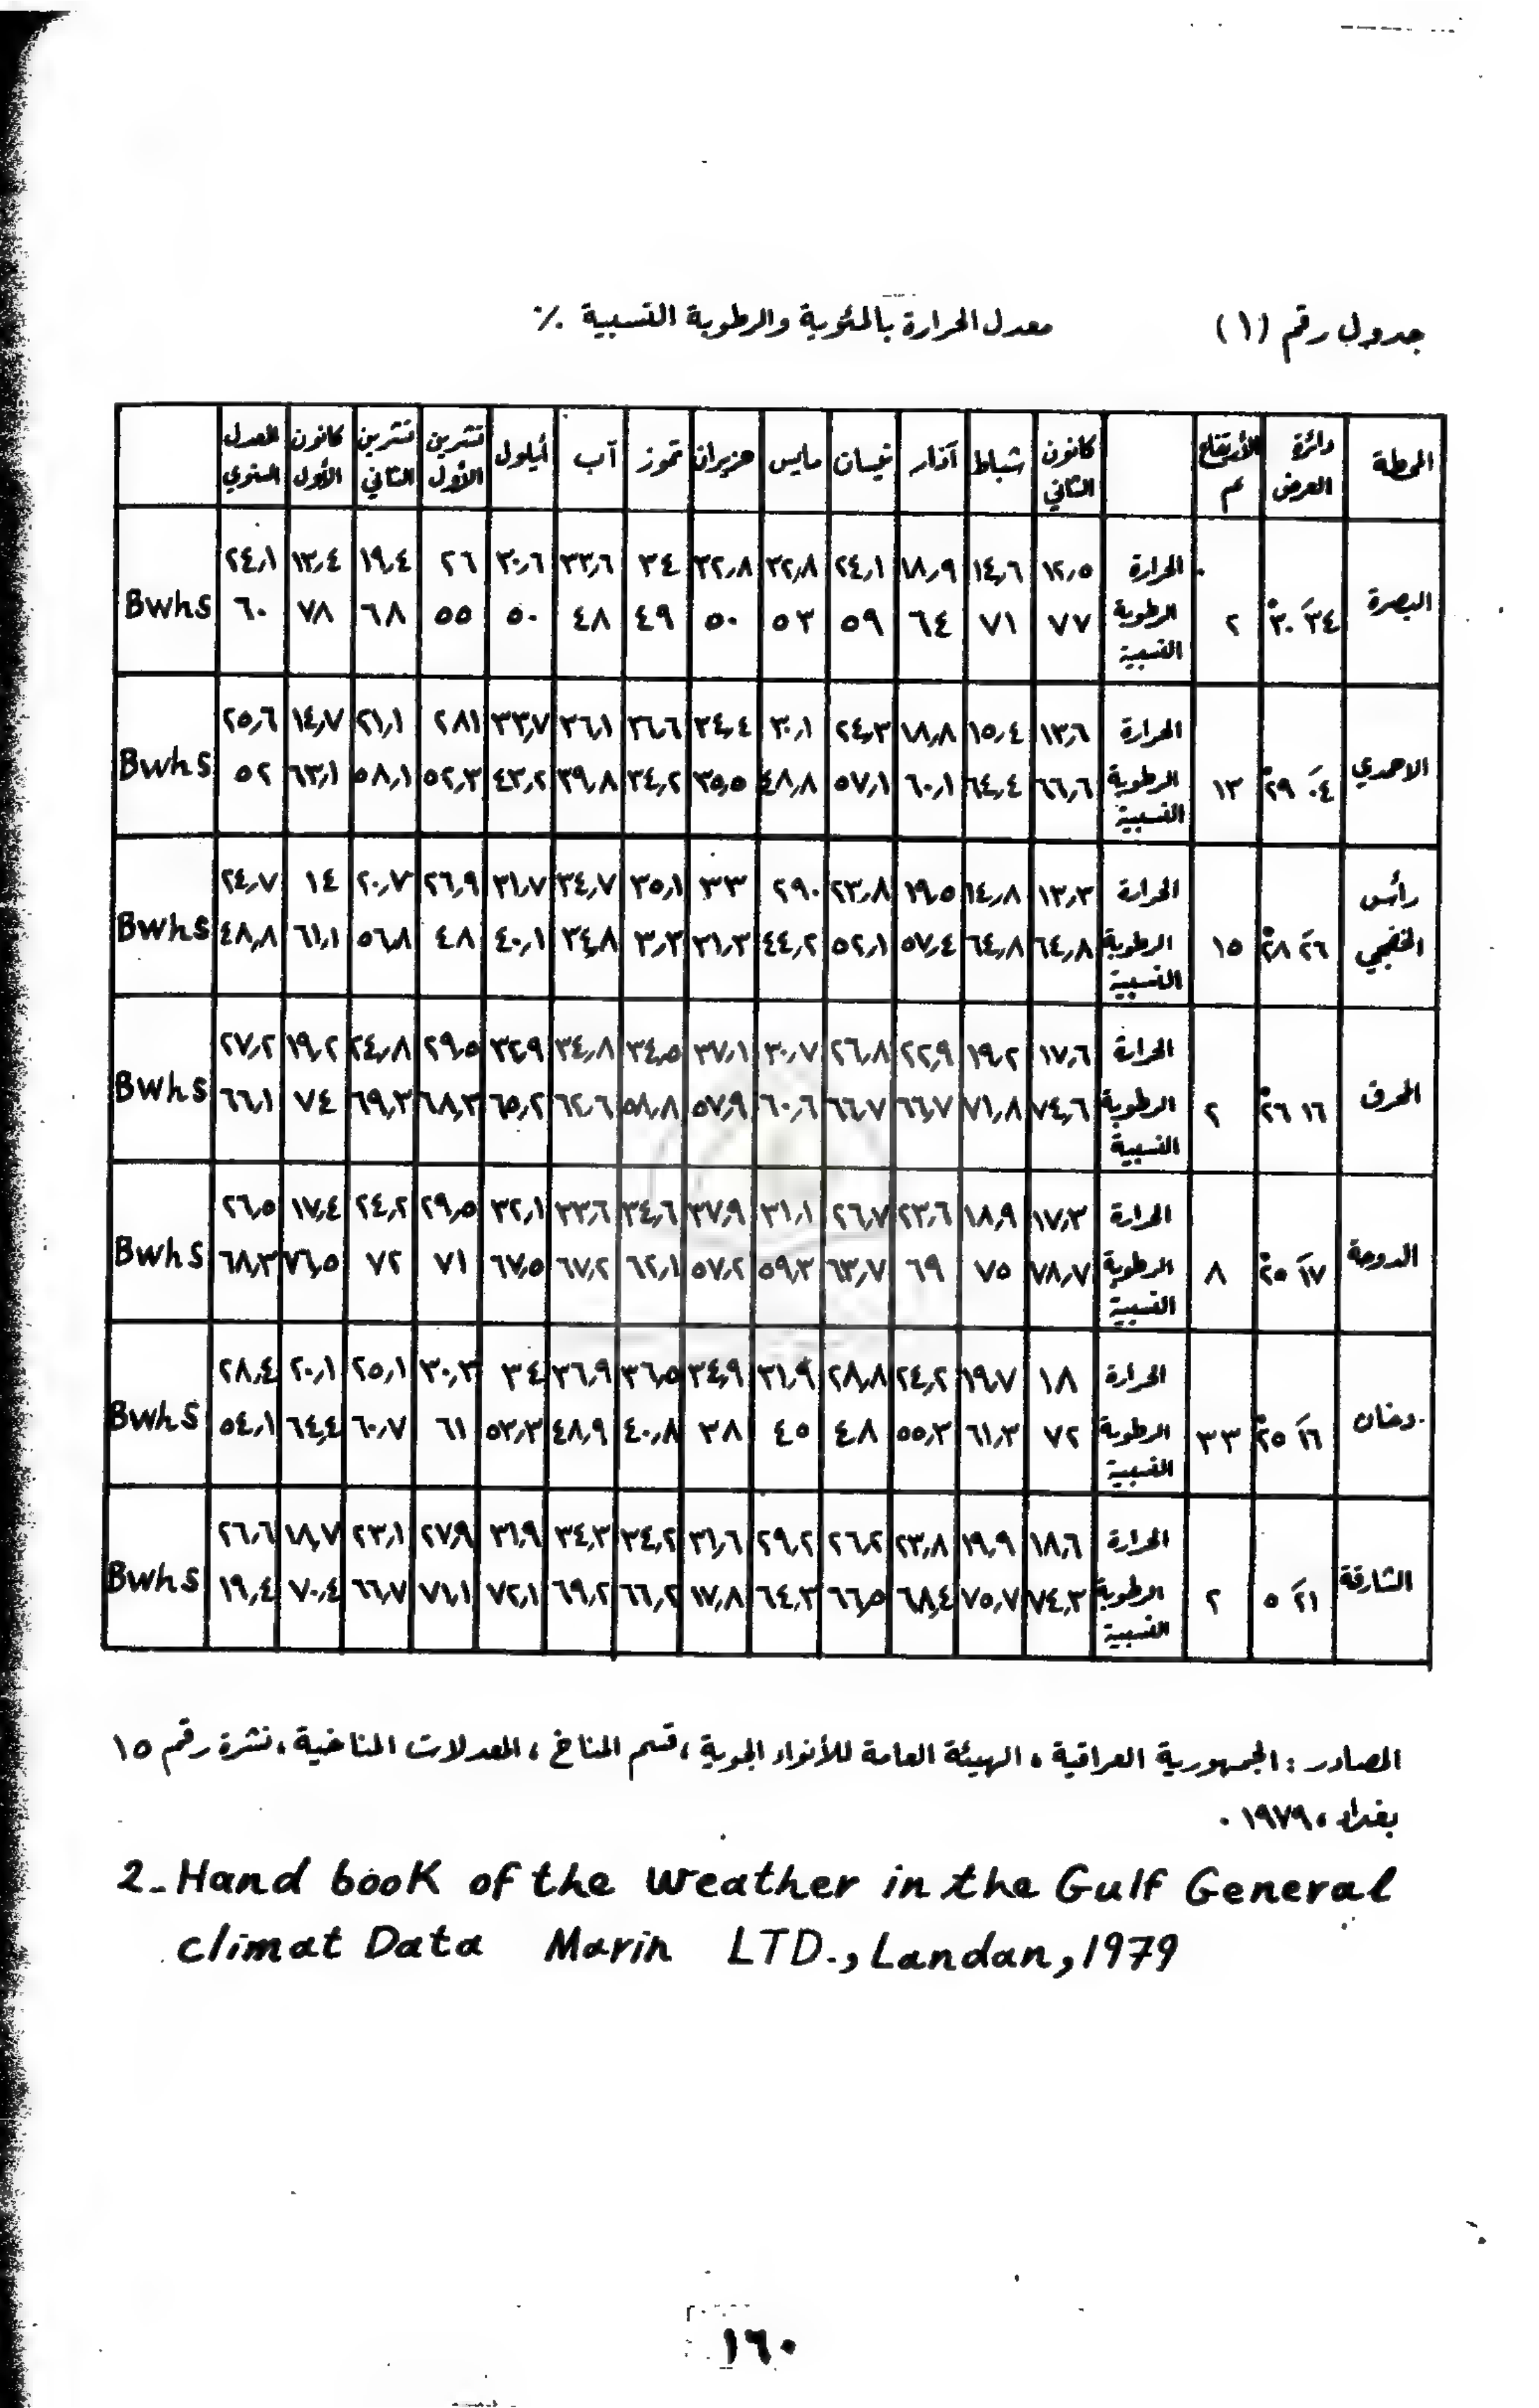 جدول رقم (١) معدل الحرارة بالمئوية والرطوبة النسبية ٪
المحطة دائرة العرض الأرتفاع م كانون الثاني شباط آذار نيسان مايس حزيران تموز آب أيلول تشرين الأول تشرين الثاني كانون الأول المعدل السنوي
البصرة ٣٤َ ٣٠ْ ٢ الحرارة ١٢,٥ ١٤,٦ ١٨,٩ ٢٤,١ ٣٢,٨ ٣٢,٨ ٣٤ ٣٣,٦ ٣٠,٦ ٢٦ ١٩,٤ ١٣,٤ ٢٤,١ Bwhs
الرطوبة النسبية ٧٧ ٧١ ٦٤ ٥٩ ٥٣ ٥٠ ٤٩ ٤٨ ٥٠ ٥٥ ٦٨ ٧٨ ٦٠
الاحمدي ٠٤َ ٢٩ْ ١٣ الحرارة ١٣,٦ ١٥,٤ ١٨,٨ ٢٤,٣ ٣٠,١ ٣٤,٤ ٣٦,٦ ٣٦,١ ٣٣,٧ ٢٨١ ٢١,١ ١٤,٧ ٢٥,٦ Bwhs
الرطوبة النسبية ٦٦,٦ ٦٤,٤ ٦٠,١ ٥٧,١ ٤٨,٨ ٣٥,٥ ٣٤,٢ ٣٩,٨ ٤٣,٢ ٥٢,٣ ٥٨,١ ٦٣,١ ٥٢
رأس الخفجي ٢٦َ ٢٨ْ ١٥ الحرارة ١٣,٣ ١٤,٨ ١٩,٥ ٢٣,٨ ٢٩٠ ٣٣ ٣٥,١ ٣٤,٧ ٣١,٧ ٢٦,٩ ٢٠,٧ ١٤ ٢٤,٧ Bwhs
الرطوبة النسبية ٦٤,٨ ٦٤,٨ ٥٧,٤ ٥٢,١ ٤٤,٢ ٣١,٣ ٣,٣ ٣٤,٨ ٤٠,١ ٤٨ ٥٦,٨ ٦١,١ ٤٨,٨
المحرق ١٦ ٢٦ْ ٢ الحرارة ١٧,٦ ١٩,٢ ٢٢,٩ ٢٦,٨ ٣٠,٧ ٣٧,١ ٣٤,٥ ٣٤,٨ ٣٢,٩ ٢٩,٥ ٢٤,٨ ١٩,٢ ٢٧,٢ Bwhs
الرطوبة النسبية ٧٤,٦ ٧١,٨ ٦٦,٧ ٦٦,٧ ٦٠,٦ ٥٧,٩ ٥٨,٨ ٦٢,٦ ٦٥,٢ ٦٨,٣ ٦٩,٣ ٧٤ ٦٦,١
الدوحة ١٧َ ٢٥ْ ٨ الحرارة ١٧,٣ ١٨,٩ ٢٣,٦ ٢٦,٧ ٣١,١ ٣٧,٩ ٣٤,٦ ٣٣,٦ ٣٢,١ ٢٩,٥ ٢٤,٢ ١٧,٤ ٢٦,٥ Bwhs
الرطوبة النسبية ٧٨,٧ ٧٥ ٦٩ ٦٣,٧ ٥٩,٣ ٥٧,٢ ٦٢,١ ٦٧,٢ ٦٧,٥ ٧١ ٧٢ ٧٦,٥ ٦٨,٣
دخان ١٦َ ٢٥ْ ٣٣ الحرارة ١٨ ١٩,٧ ٢٤,٢ ٢٨,٨ ٣١,٩ ٣٤,٩ ٣٦,٥ ٣٦,٩ ٣٤ ٣٠,٣ ٢٥,١ ٢٠,١ ٢٨,٤ Bwhs
الرطوبة النسبية ٧٢ ٦١,٣ ٥٥,٣ ٤٨ ٤٥ ٣٨ ٤٠,٨ ٤٨,٩ ٥٣,٣ ٦١ ٦٠,٧ ٦٤,٤ ٥٤,١
الشارقة ٢١َ ٥ ٢ الحرارة ١٨,٦ ١٩,٩ ٢٣,٨ ٢٦,٢ ٢٩,٢ ٣١,٦ ٣٤,٢ ٣٤,٣ ٣١,٩ ٢٧,٩ ٢٣,١ ١٨,٧ ٢٦,٦ Bwhs
الرطوبة النسبية ٧٤,٣ ٧٥,٧ ٦٨,٤ ٦٦,٥ ٦٤,٣ ١٧,٨ ٦٦,٢ ٦٩,٢ ٧٢,١ ٧١,١ ٦٦,٧ ٧٠,٤ ١٩,٤
المصادر : الجمهورية العراقية ، الهيئة العامة للأنواء الجوية ، قسم المناخ ، المعدلات المناخية ، نشرة رقم ١٥
بغداد ، ١٩٧٩ .
2_ Hand book of the weather in the Gulf General
climat Data Marin LTD., Landan, 1979
١٦٠